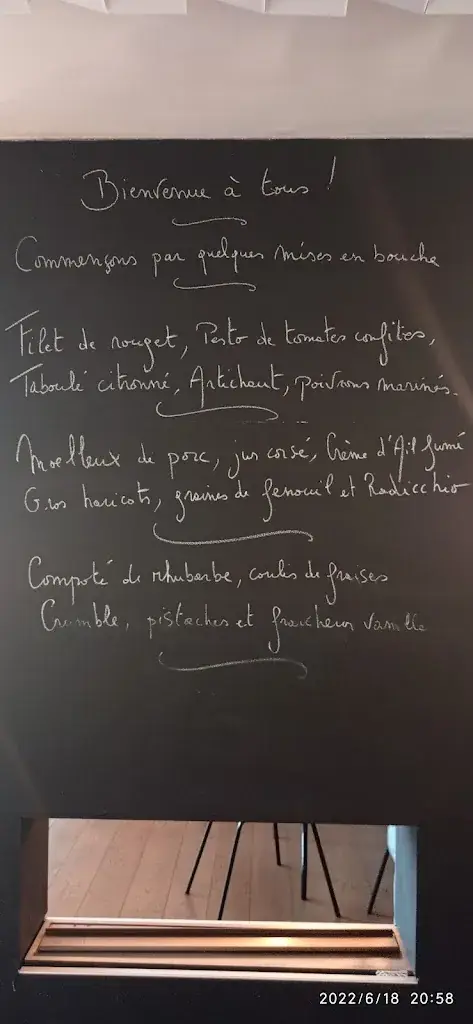 Bienvenue à tous !
Commençons par quelques mises en bouche
Filet de rouget, Pesto de tomates confites,
Taboulé citronné, Artichaut, poivrons marinés.
Moelleux de porc, jus corsé, Crème d'Ail fumé
Gros haricots, graines de fenouil et Radicchio
Compoté de rhubarbe, coulis de fraises
Crumble, pistaches et fraicheur vanille
2022/6/18 20:58